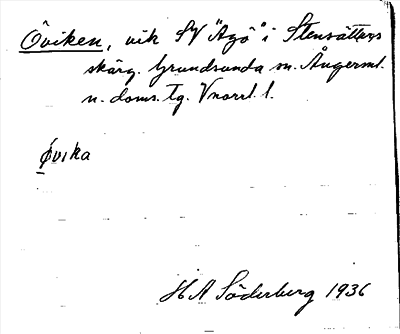 Öviken, vik SV "Agö" i Stensätters
skärg. Grundsunda sn. Ångerml.
n. doms. tg. Vnorrl. l.
Øvika
H A Söderberg 1936